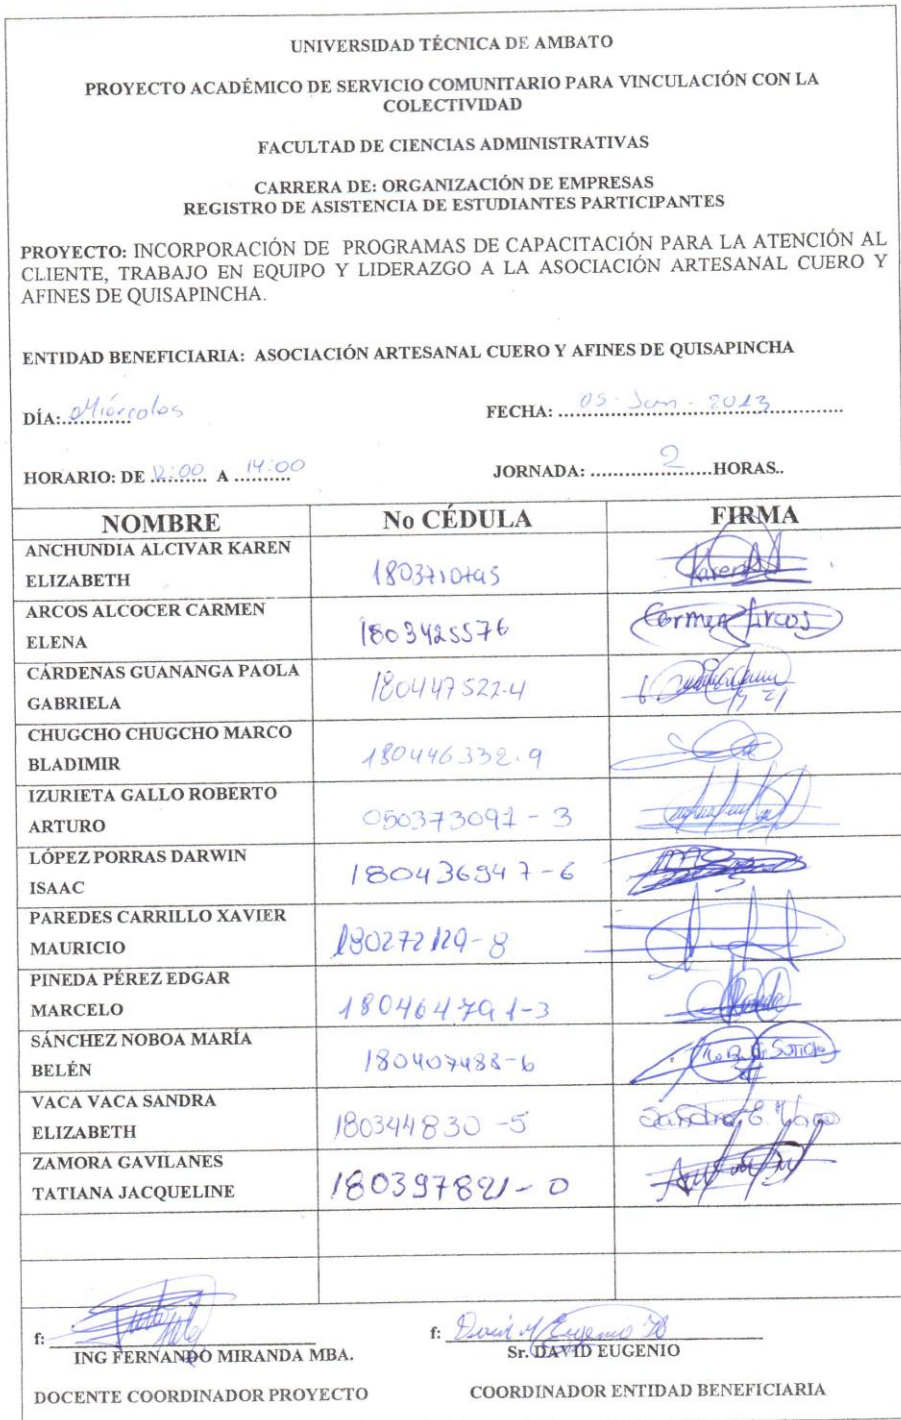 UNIVERSIDAD TÉCNICA DE AMBATO
PROYECTO ACADÉMICO DE SERVICIO COMUNITARIO PARA VINCULACIÓN CON LA
COLECTIVIDAD
FACULTAD DE CIENCIAS ADMINISTRATIVAS
CARRERA DE: ORGANIZACIÓN DE EMPRESAS
REGISTRO DE ASISTENCIA DE ESTUDIANTES PARTICIPANTES
PROYECTO: INCORPORACIÓN DE PROGRAMAS DE CAPACITACIÓN PARA LA ATENCIÓN AL
CLIENTE, TRABAJO EN EQUIPO Y LIDERAZGO A LA ASOCIACIÓN ARTESANAL CUERO Y
AFINES DE QUISAPINCHA.
ENTIDAD BENEFICIARIA: ASOCIACIÓN ARTESANAL CUERO Y AFINES DE QUISAPINCHA
DÍA: Miércoles FECHA: 05 - Jun - 2013
HORARIO: DE 12:00 A 14:00 JORNADA: 2 HORAS..
NOMBRE No CÉDULA FIRMA
ANCHUNDIA ALCIVAR KAREN
ELIZABETH Karen
ARCOS ALCOCER CARMEN
ELENA 1803425576 Carmen Arcos
CÁRDENAS GUANANGA PAOLA
GABRIELA 180447522-4
CHUGCHO CHUGCHO MARCO
BLADIMIR 180446332-9
IZURIETA GALLO ROBERTO
ARTURO 050373091-3
LÓPEZ PORRAS DARWIN
ISAAC 180436947-6
PAREDES CARRILLO XAVIER
MAURICIO 180272129-8
PINEDA PÉREZ EDGAR
MARCELO 180464791-3
SÁNCHEZ NOBOA MARÍA
BELÉN 180407488-6
VACA VACA SANDRA
ELIZABETH 180344830-5 Sandra E. Vaca
ZAMORA GAVILANES
TATIANA JACQUELINE 180397821-0
f: f: David Eugenio
ING FERNANDO MIRANDA MBA. Sr. DAVID EUGENIO
DOCENTE COORDINADOR PROYECTO COORDINADOR ENTIDAD BENEFICIARIA